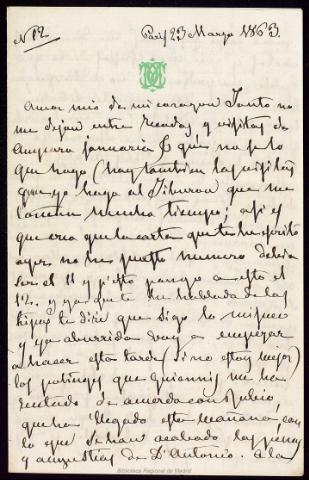 Nº 12
Paris 23 Marzo 1863.
Amor mio de mi corazon Tanto no
me dejan entre recados y visitas de
Amparo Januaria & que no se lo
que hago (hay tambien las visitas
que yo hago al que me
mucho tiempo; asi es
que creo que la carta que te he escrito
ayer no he puesto numero debia
ser el 11 y p.r esto pongo a esta el
12. y ya que te he hablado de las
te dire que sigo lo mismo
y ya aburrida voy a empezar
a hacer esta tarde (si no estoy mejor)
las que me ha
de acuerdo con Rubio,
que ha llegado esta mañana, con
lo que se han acabado las penas
y angustias de Dn Antonio. a la
Biblioteca Regional de Madrid